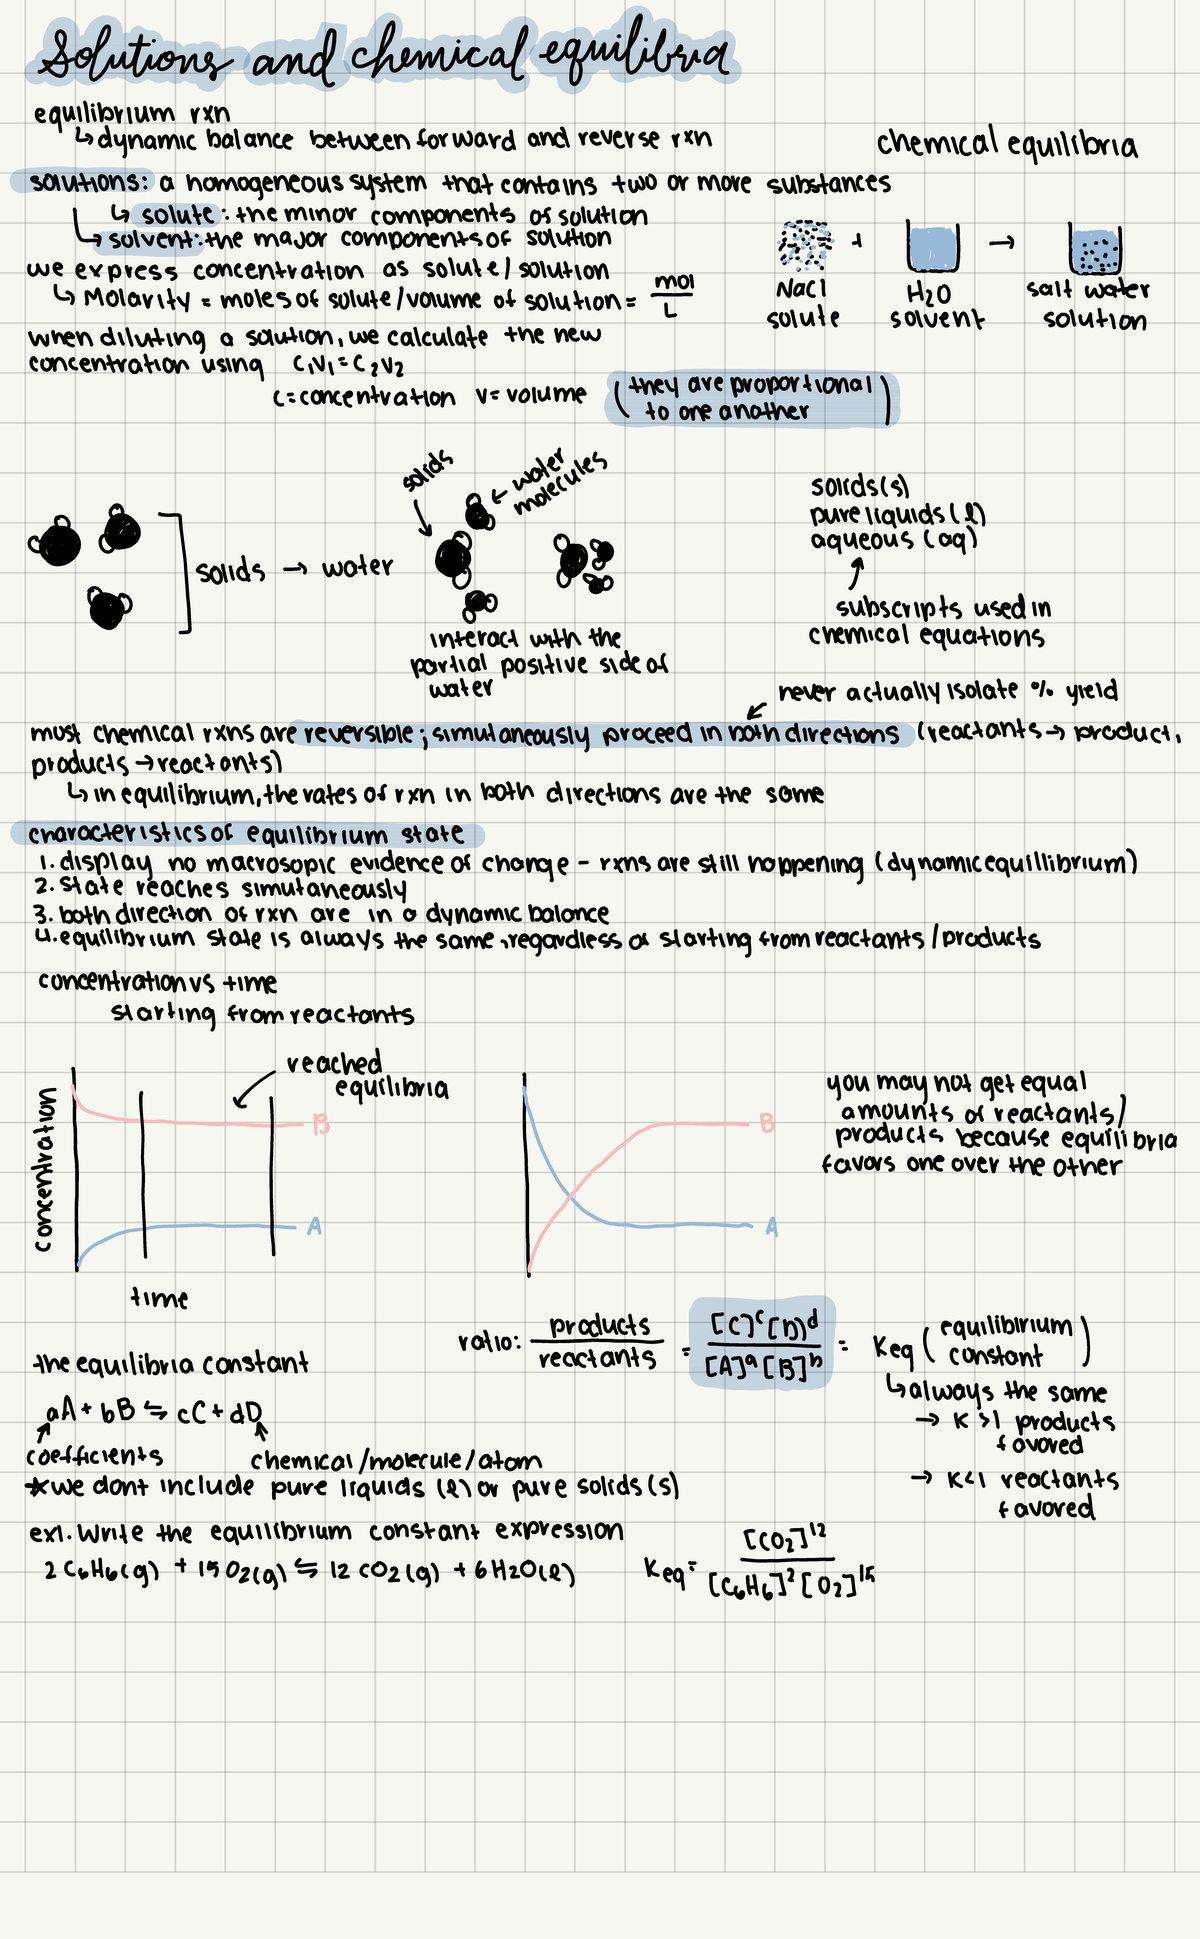 Solutions and chemical equilibria
equilibrium rxn
↳ dynamic balance between forward and reverse rxn
chemical equilibria
solutions: a homogeneous system that contains two or more substances
↳ solute: the minor components of solution
↳ solvent: the major components of solution
we express concentration as solute/solution
↳ Molarity = moles of solute/volume of solution = mol/L
NaCl + H2O → salt water
solute solvent solution
when diluting a solution, we calculate the new
concentration using C1V1 = C2V2
C = concentration V = volume (they are proportional
to one another)
solids
← water
molecules
solids → water
interact with the
partial positive side of
water
solids (s)
pure liquids (l)
aqueous (aq)
subscripts used in
chemical equations
never actually isolate % yield
most chemical rxns are reversible; simultaneously proceed in both directions (reactants → product,
products → reactants)
↳ in equilibrium, the rates of rxn in both directions are the same
characteristics of equilibrium state
1. display no macrosopic evidence of change - rxns are still happening (dynamic equillibrium)
2. state reaches simutaneously
3. both direction of rxn are in a dynamic balance
4. equilibrium state is always the same, regardless of starting from reactants/products
concentration vs time
starting from reactants
reached
equilibria
concentration
B
A
time
B
A
you may not get equal
amounts of reactants/
products because equilibria
favors one over the other
ratio: products/reactants = [C]^c [D]^d / [A]^a [B]^b = Keq (equilibirium
constant)
↳ always the same
→ K > 1 products
favored
→ K < 1 reactants
favored
the equilibria constant
aA + bB ⇋ cC + dD
coefficients
chemical/molecule/atom
*we dont include pure liquids (l) or pure solids (s)
ex1. Write the equilibrium constant expression
2 C6H6(g) + 15 O2(g) ⇋ 12 CO2(g) + 6 H2O(l)
Keq = [CO2]^12 / [C6H6]^2 [O2]^15